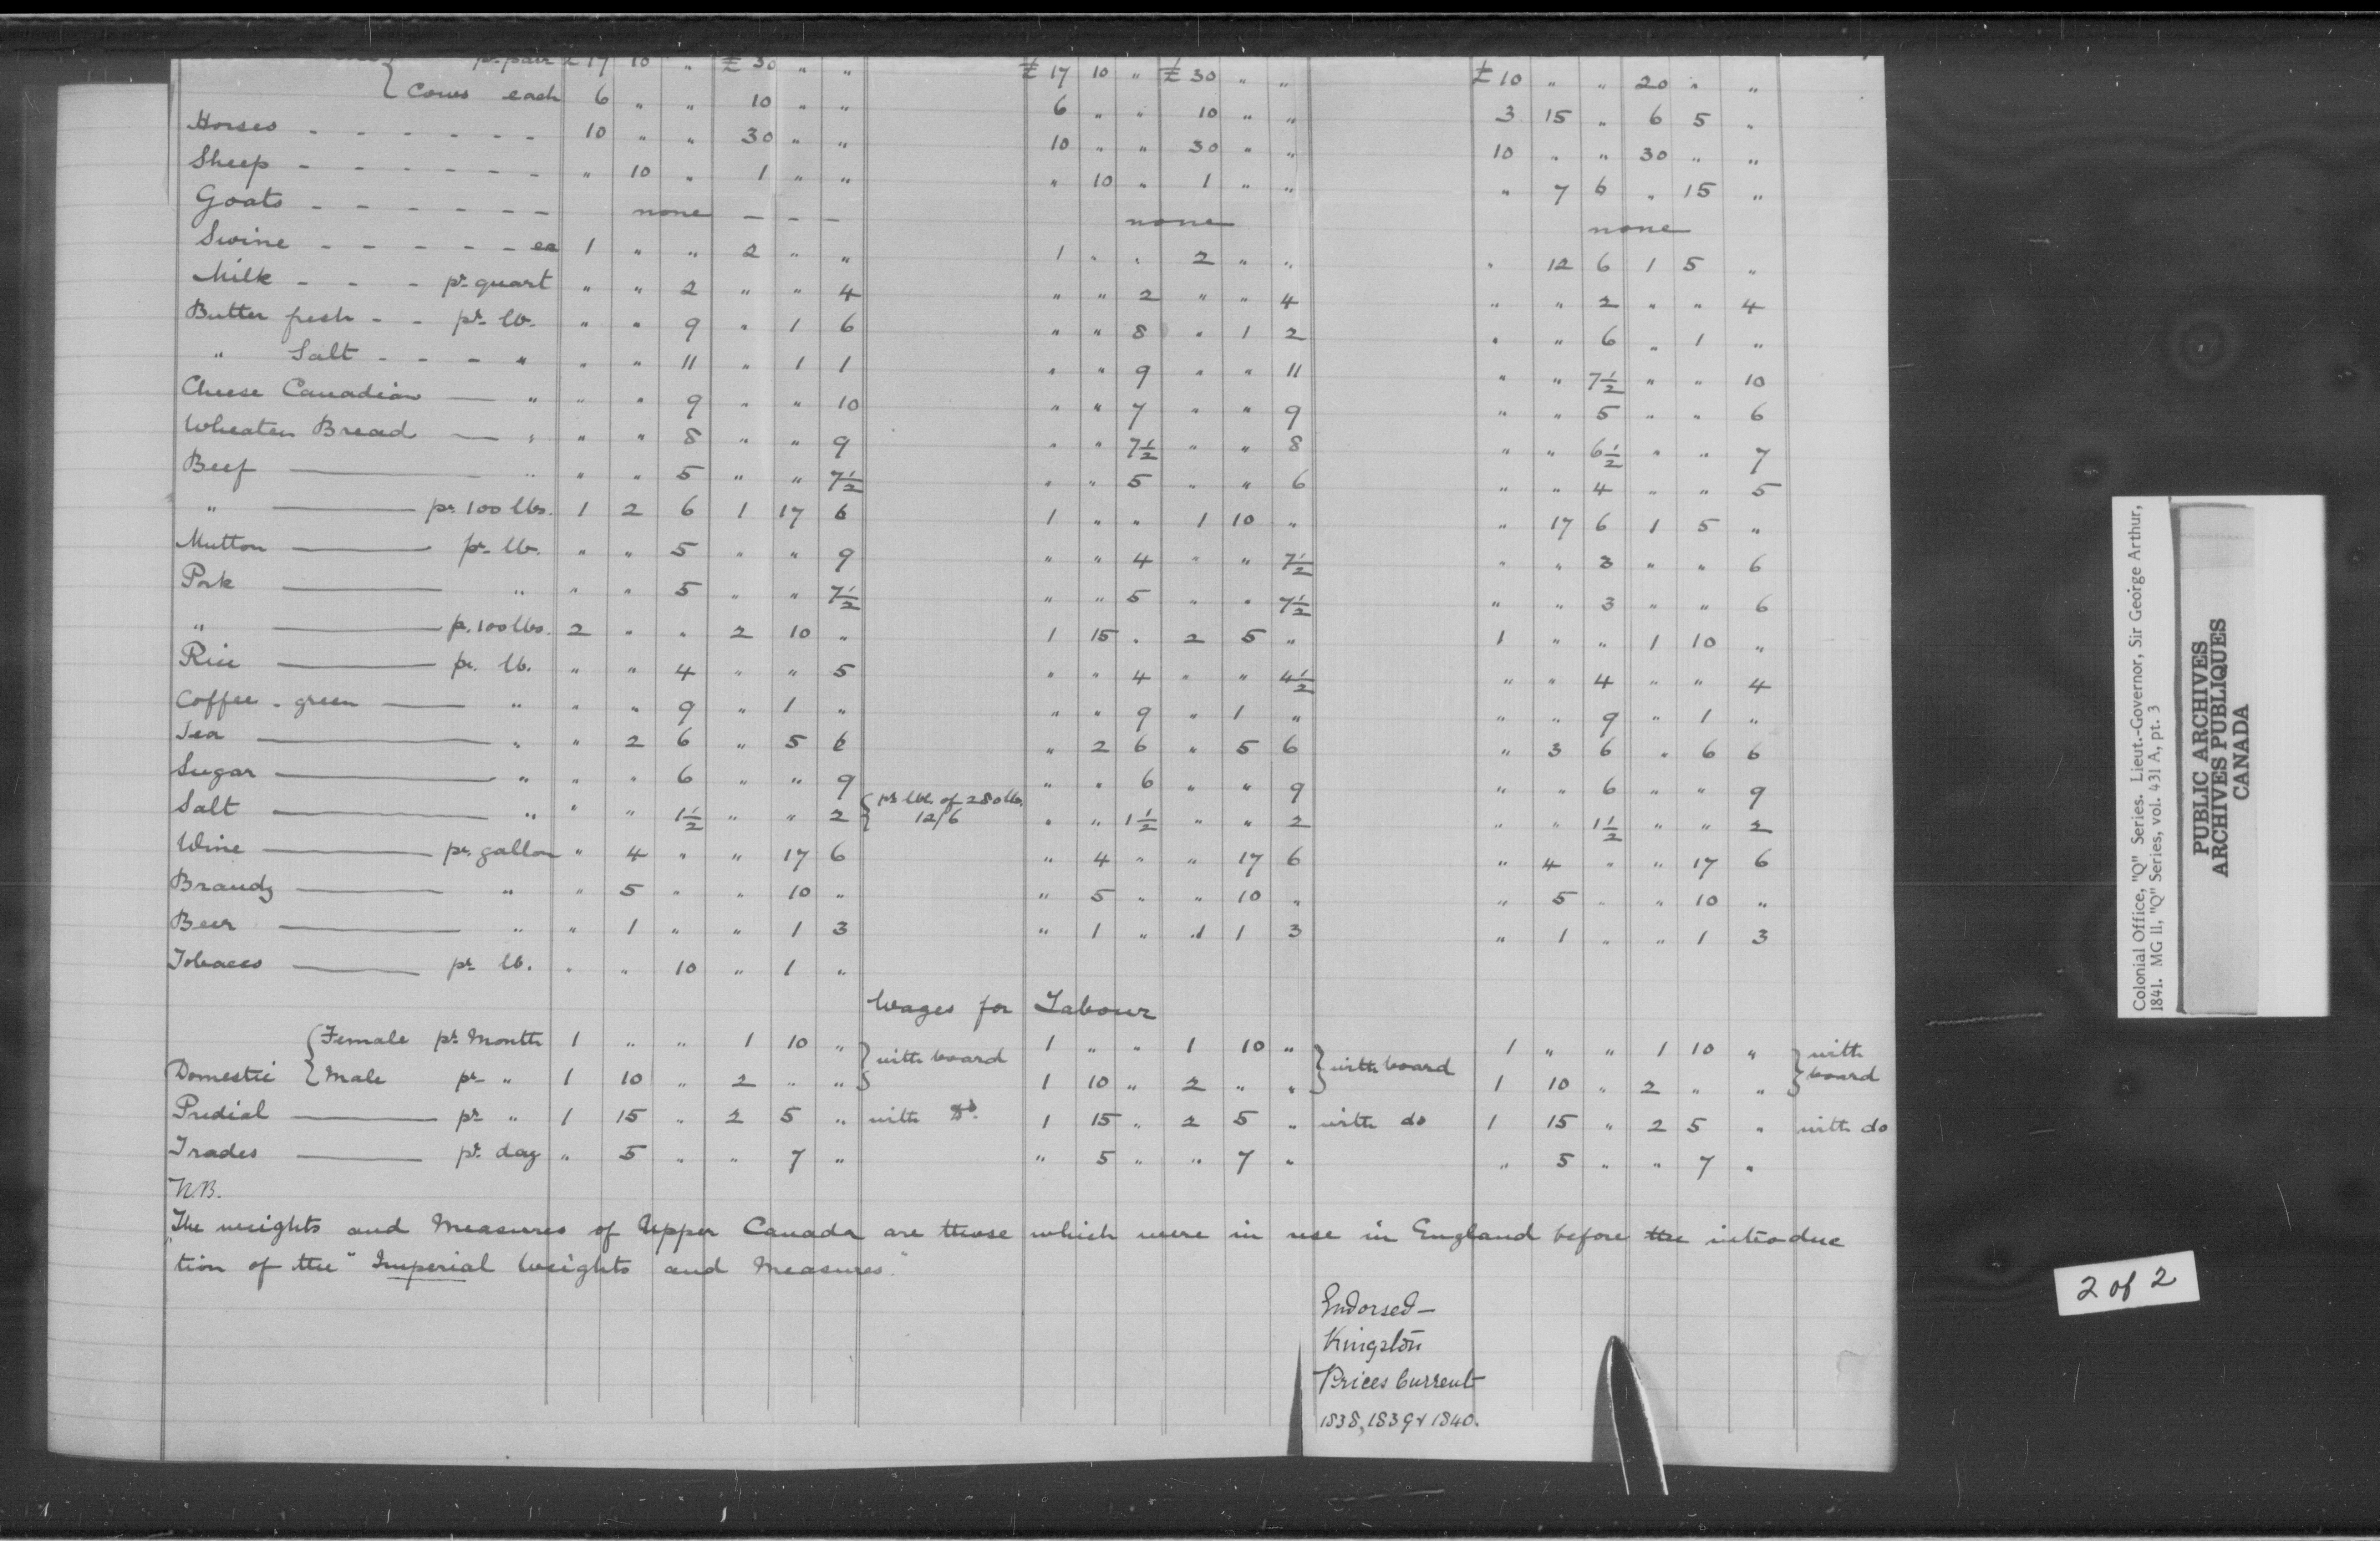 pr. pair £ 17 10 " £ 30 " " £ 17 10 " £ 30 " " £ 10 " " 20 " "
{ Cows each 6 " " 10 " " 6 " " 10 " " 3 15 " 6 5 "
Horses - - - - - - 10 " " 30 " " 10 " " 30 " " 10 " " 30 " "
Sheep - - - - - - " 10 " 1 " " " 10 " 1 " " " 7 6 " 15 "
Goats - - - - - - none - - - none none
Swine - - - - - ea 1 " " 2 " " 1 " " 2 " " " 12 6 1 5 "
Milk - - - pr. quart " " 2 " " 4 " " 2 " " 4 " " 2 " " 4
Butter fresh - - pr. lb. " " 9 " 1 6 " " 8 " 1 2 " " 6 " 1 "
" Salt - - - " " " 11 " 1 1 " " 9 " " 11 " " 7½ " " 10
Cheese Canadian — " " " 9 " " 10 " " 7 " " 9 " " 5 " " 6
Wheaten Bread — " " " 8 " " 9 " " 7½ " " 8 " " 6½ " " 7
Beef — " " " 5 " " 7½ " " 5 " " 6 " " 4 " " 5
" — pr. 100 lbs. 1 2 6 1 17 6 1 " " 1 10 " " 17 6 1 5 "
Mutton — pr. lb. " " 5 " " 9 " " 4 " " 7½ " " 3 " " 6
Pork — " " " 5 " " 7½ " " 5 " " 7½ " " 3 " " 6
" — p. 100 lbs. 2 " " 2 10 " 1 15 " 2 5 " 1 " " 1 10 "
Rice — pr. lb. " " 4 " " 5 " " 4 " " 4½ " " 4 " " 4
Coffee - green — " " " 9 " 1 " " " 9 " 1 " " " 9 " 1 "
Tea — " " 2 6 " 5 6 " 2 6 " 5 6 " 3 6 " 6 6
Sugar — " " " 6 " " 9 " " 6 " " 9 " " 6 " " 9
Salt — " " " 1½ " " 2 { pr bbl. of 280 lbs. 12/6 " " 1½ " " 2 " " 1½ " " 2
Wine — pr. gallon " 4 " " 17 6 " 4 " " 17 6 " 4 " " 17 6
Brandy — " " 5 " " 10 " " 5 " " 10 " " 5 " " 10 "
Beer — " " 1 " " 1 3 " 1 " " 1 3 " 1 " " 1 3
Tobacco — pr lb. " " 10 " 1 "
Wages for Labour
{ Female pr. Month 1 " " 1 10 " } with board 1 " " 1 10 " } with board 1 " " 1 10 " } with board
Domestic { Male pr " 1 10 " 2 " " 1 10 " 2 " " 1 10 " 2 " "
Predial — pr " 1 15 " 2 5 " with Do. 1 15 " 2 5 " with do 1 15 " 2 5 " with do
Trades — pr. day " 5 " " 7 " " 5 " " 7 " " 5 " " 7 "
N.B.
The weights and Measures of Upper Canada are those which were in use in England before the introduc
"tion of the "Imperial Weights and Measures."
Endorsed —
Kingston
Prices Current
1838, 1839 & 1840.
Colonial Office, "Q" Series. Lieut.-Governor, Sir George Arthur,
1841. MG 11, "Q" Series, vol. 431 A, pt. 3
PUBLIC ARCHIVES
ARCHIVES PUBLIQUES
CANADA
2 of 2